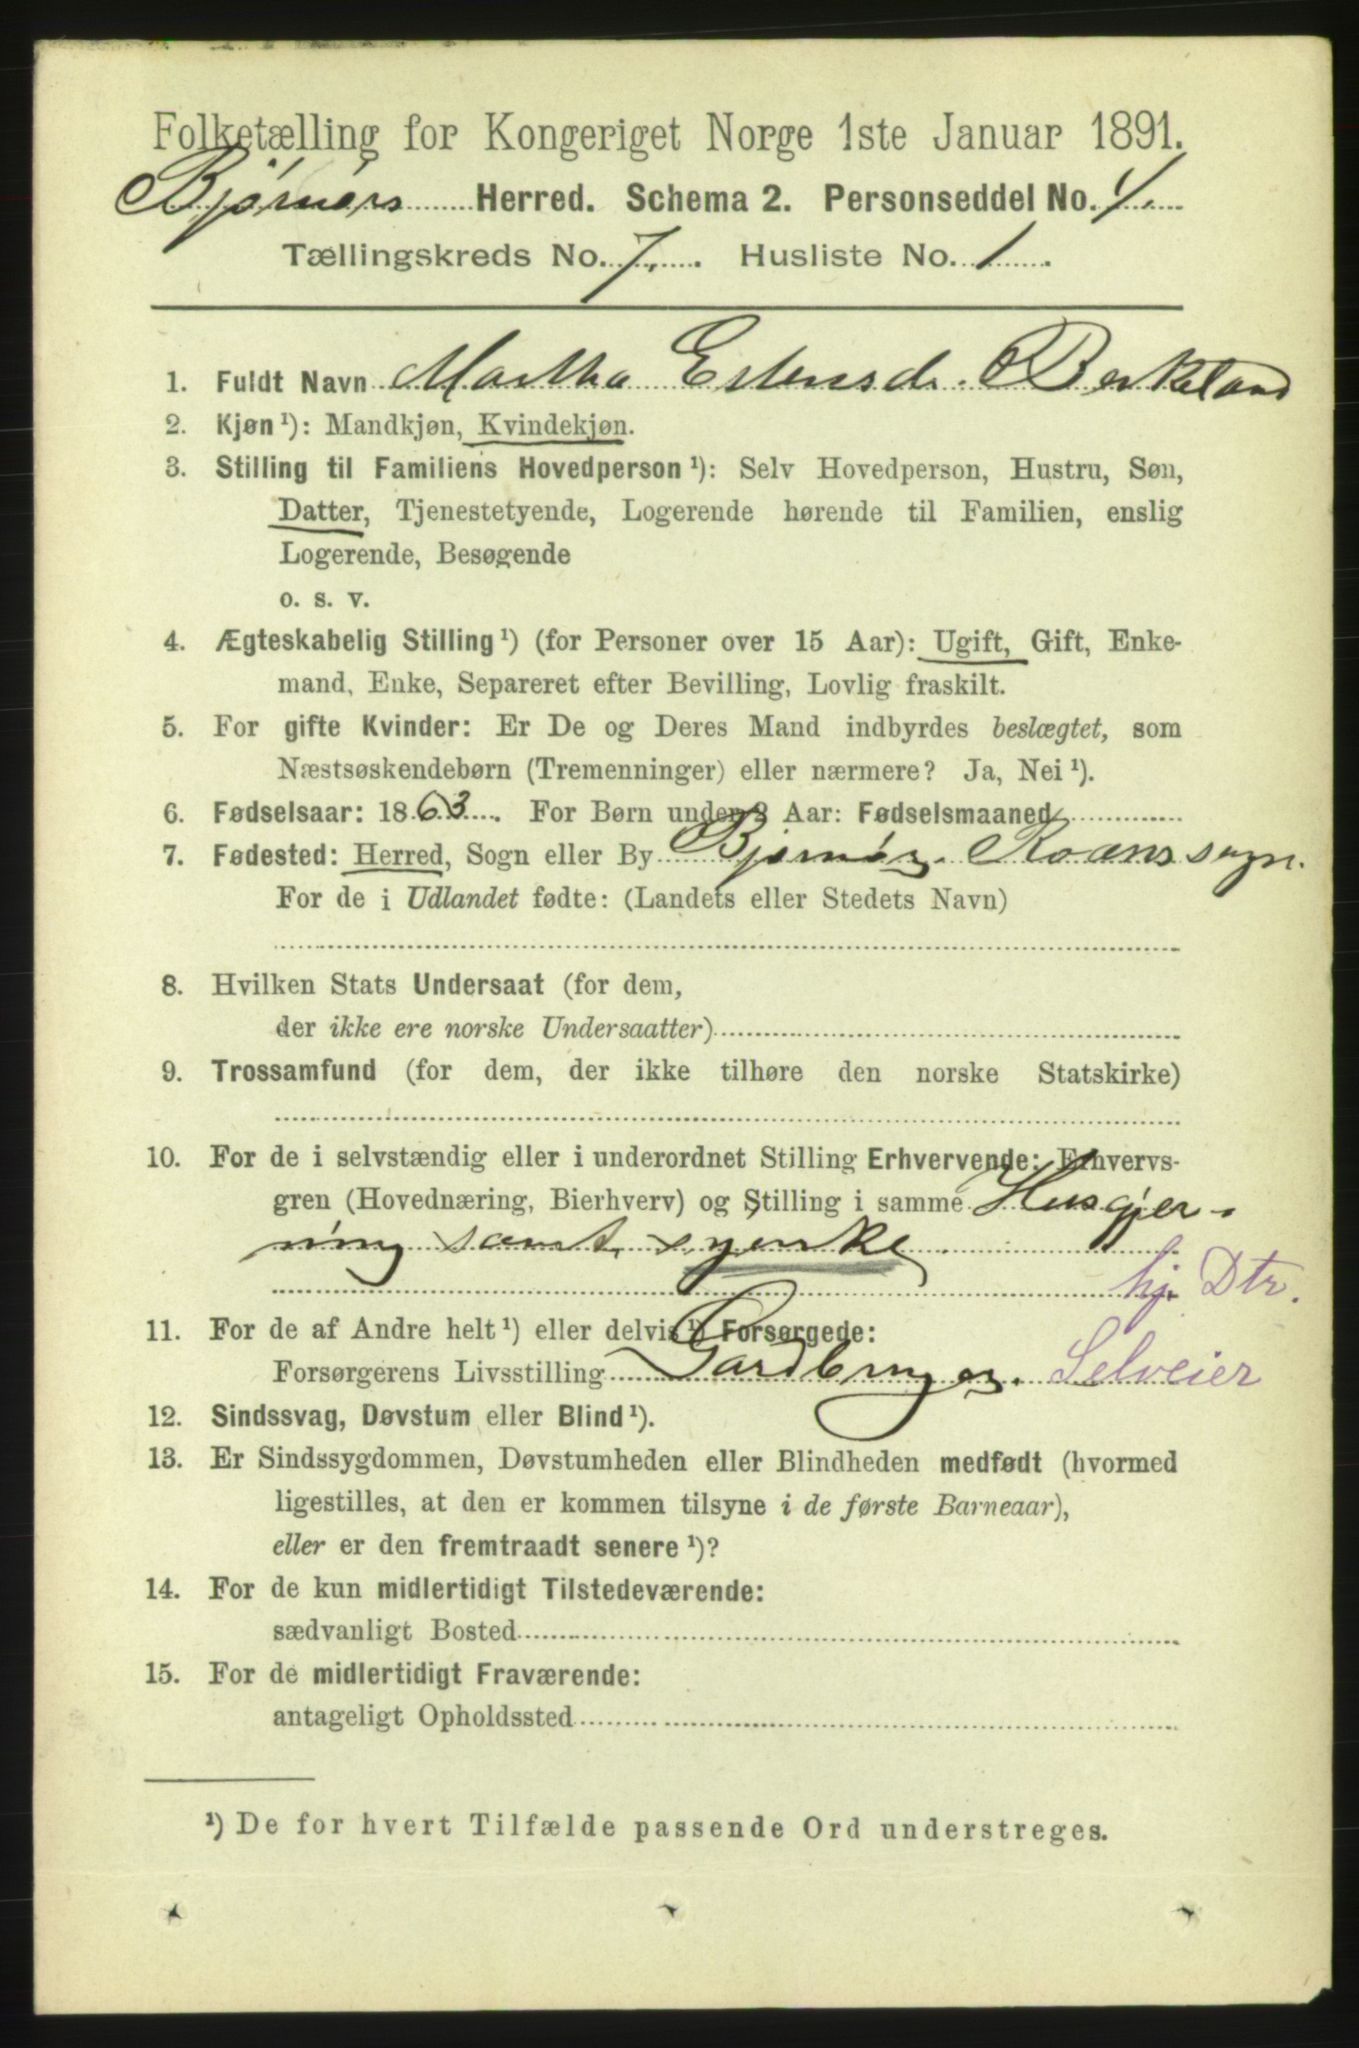 Folketælling for Kongeriget Norge 1ste Januar 1891.
Bjørnørs Herred. Schema 2. Personseddel No. 4.
Tællingskreds No. 7. Husliste No. 1
1. Fuldt Navn Martha Estensd. Berkeland
2. Kjøn¹): Mandkjøn, Kvindekjøn.
3. Stilling til Familiens Hovedperson¹): Selv Hovedperson, Hustru, Søn,
Datter, Tjenestetyende, Logerende hørende til Familien, enslig
Logerende, Besøgende
o. s. v.
4. Ægteskabelig Stilling¹) (for Personer over 15 Aar): Ugift, Gift, Enke-
mand, Enke, Separeret efter Bevilling, Lovlig fraskilt.
5. For gifte Kvinder: Er De og Deres Mand indbyrdes beslægtet, som
Næstsøskendebørn (Tremenninger) eller nærmere? Ja, Nei¹).
6. Fødselsaar: 1863. For Børn under 2 Aar: Fødselsmaaned
7. Fødested: Herred, Sogn eller By Bjørnør. Roans sogn.
For de i Udlandet fødte: (Landets eller Stedets Navn)
8. Hvilken Stats Undersaat (for dem,
der ikke ere norske Undersaatter)
9. Trossamfund (for dem, der ikke tilhøre den norske Statskirke)
10. For de i selvstændig eller i underordnet Stilling Erhvervende: Erhvervs-
gren (Hovednæring, Bierhverv) og Stilling i samme Husgjer-
ning samt syerske
hj. Dtr.
11. For de af Andre helt¹) eller delvis¹) Forsørgede:
Forsørgerens Livsstilling Gardbruger. Selveier
12. Sindssvag, Døvstum eller Blind¹).
13. Er Sindssygdommen, Døvstumheden eller Blindheden medfødt (hvormed
ligestilles, at den er kommen tilsyne i de første Barneaar),
eller er den fremtraadt senere¹)?
14. For de kun midlertidigt Tilstedeværende:
sædvanligt Bosted
15. For de midlertidigt Fraværende:
antageligt Opholdssted
¹) De for hvert Tilfælde passende Ord understreges.